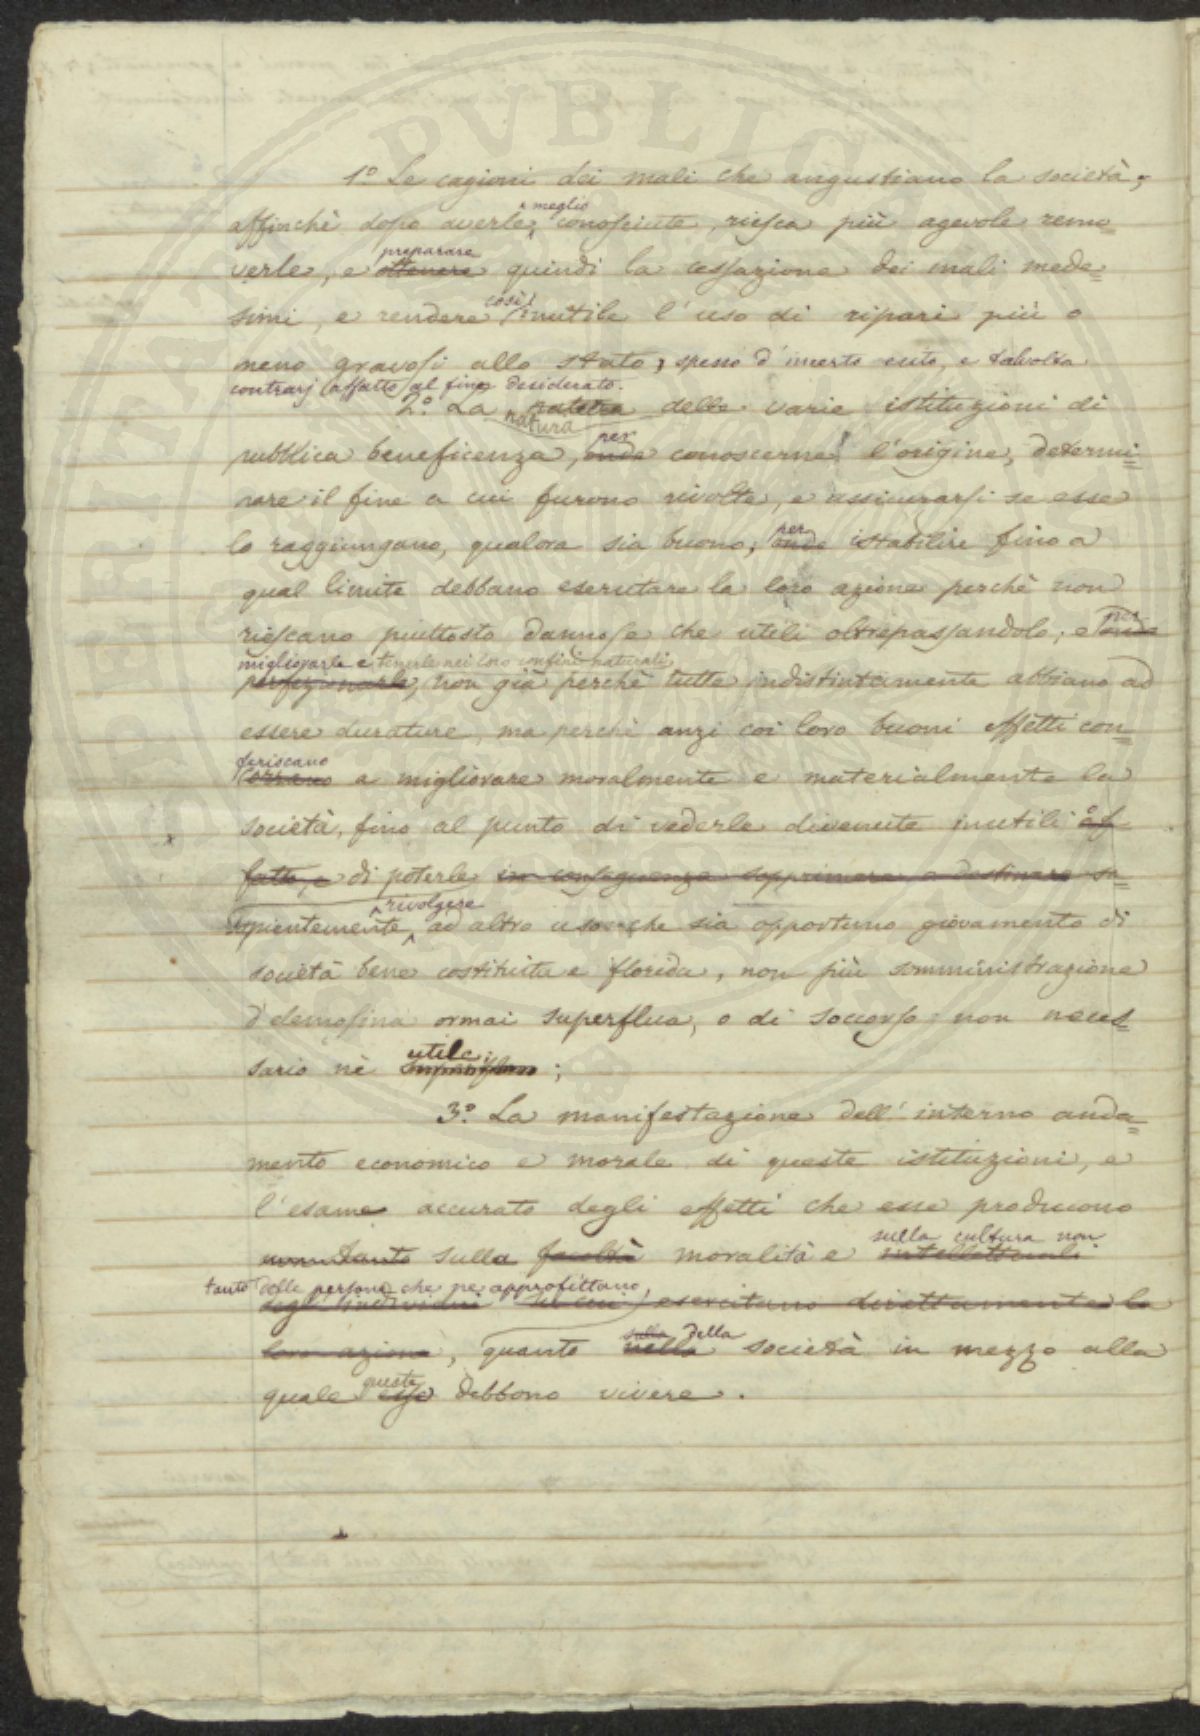 1º Le cagioni dei mali che angustiano la società,
affinchè dopo averle meglio conosciute, riesca più agevole remo
verle, e ottenere preparare quindi la cessazione dei mali mede=
simi, e rendere così inutile l'uso di ripari più o
meno gravosi allo stato, spesso d'incerto esito, e talvolta
contrarj affatto al fine desiderato.
2º La natura delle varie istituzioni di
natura
pubblica beneficenza, onde per conoscerne l'origine, determi=
nare il fine a cui furono rivolte, e assicurarsi se esse
lo raggiungano, qualora sia buono; onde per istabilire fino a
qual limite debbano esercitare la loro azione perchè non
riescano piuttosto dannose che utili oltrepassandolo; e onde per
migliorarle e tenerle nei loro confini naturali,
perfezionarle, non già perchè tutte indistintamente abbiano ad
essere durature, ma perchè anzi coi loro buoni effetti con=
feriscano
corrano a migliorare moralmente e materialmente la
società, fino al punto di vederle divenute inutili af
fatto, e di poterle in conseguenza sopprimere o destinare sa=
pientemente rivolgere ad altro uso che sia opportuno giovamento di
società bene costituita e florida, non più somministrazione
d'elemosina ormai superflua, o di soccorso non neces=
sario nè utile;
3º La manifestazione dell'interno anda=
mento economico e morale di queste istituzioni, e
l'esame accurato degli effetti che esse producono
non tanto sulla facoltà moralità e intellettuali sulla cultura non
tanto delle persone che ne approfittano,
degl'individui su cui esercitano direttamente la
loro azione, quanto nella sulla della società in mezzo alla
quale esse queste debbono vivere.